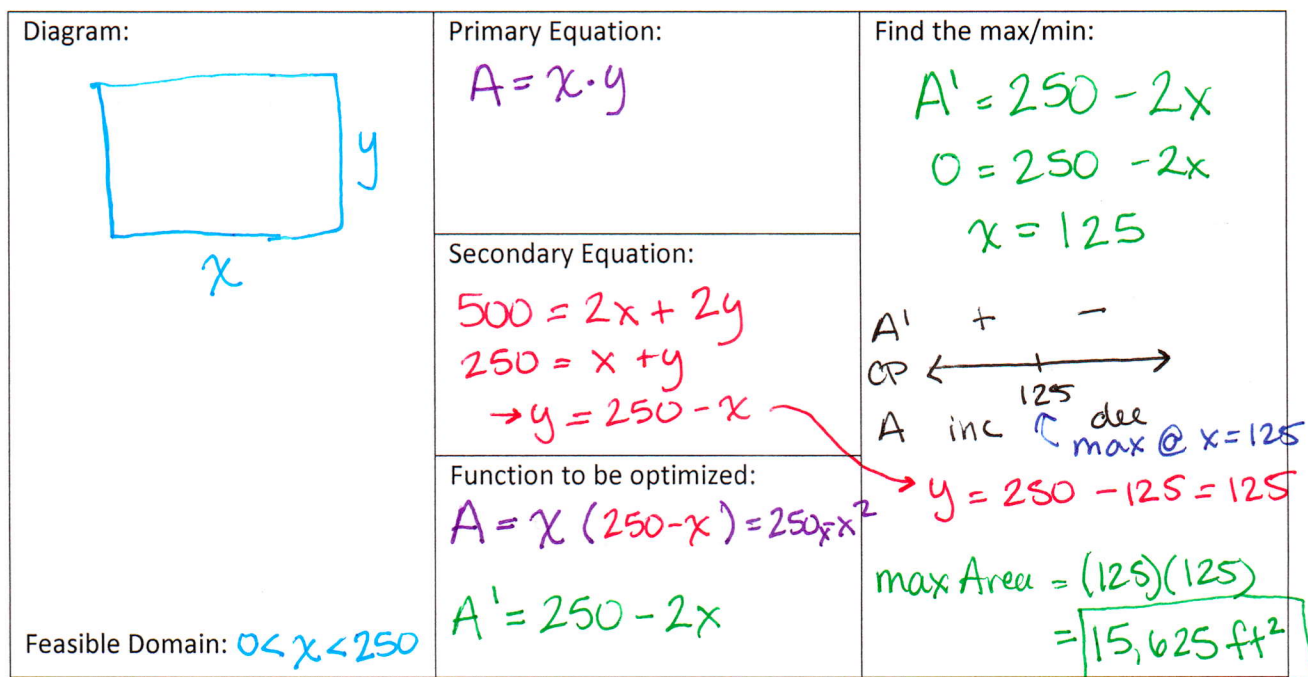 Diagram:
y
x
Feasible Domain: 0<x<250
Primary Equation:
A = x·y
Secondary Equation:
500 = 2x + 2y
250 = x + y
→ y = 250 - x
Function to be optimized:
A = x (250-x) = 250x-x²
A' = 250 - 2x
Find the max/min:
A' = 250 - 2x
0 = 250 - 2x
x = 125
A' + -
CP
125
A inc dec
max @ x=125
y = 250 - 125 = 125
max Area = (125)(125)
= 15,625 ft²